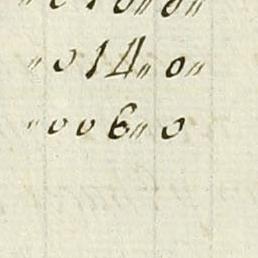 " 0 14 " 0 "
" 0 0 6 " 0